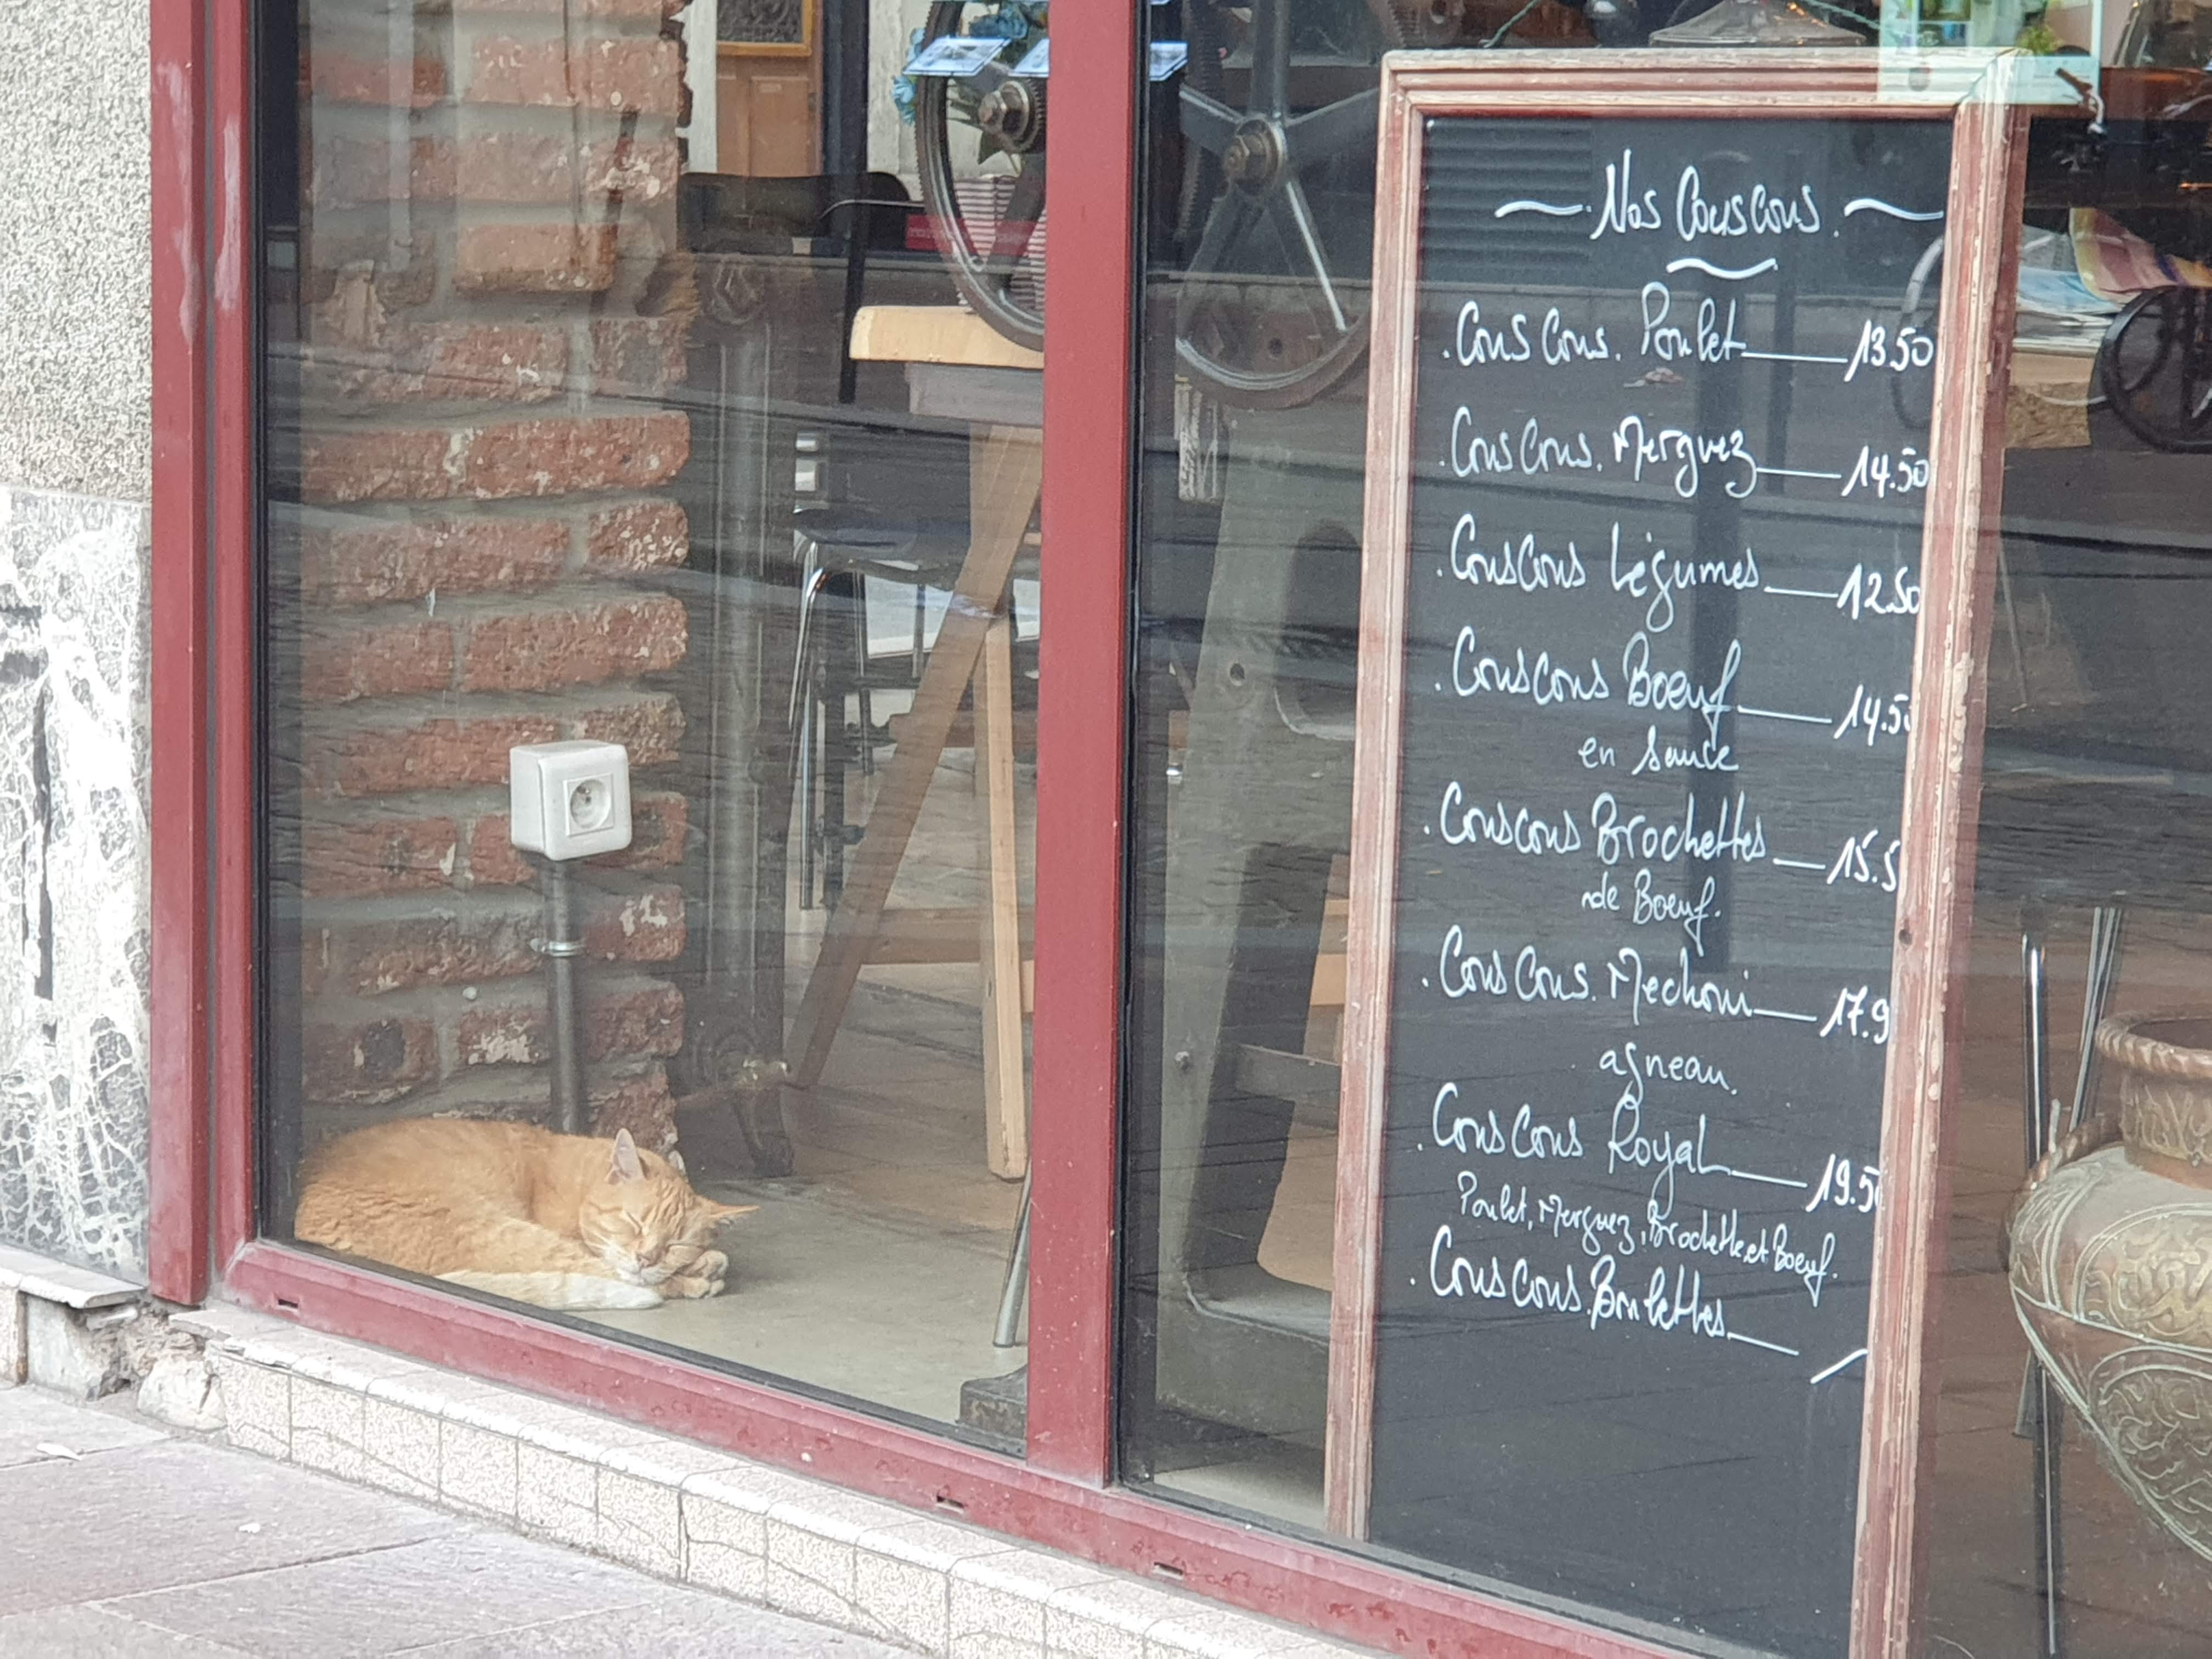 Nos Couscous.
. Couscous. Poulet 13.50
. Couscous. Merguez 14.50
. Couscous Légumes 12.50
. Couscous Boeuf 14.50
en sauce
. Couscous Brochettes 15.5
de Boeuf.
. Couscous. Mechoui 17.9
agneau.
. Couscous Royal 19.50
Poulet, Merguez, Brochette et Boeuf.
. Couscous. Boulettes